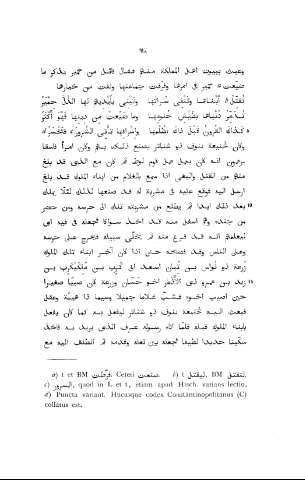 وعبث ببيوت اهل المملكة منهم فقال قائل من حمير يذكر ما
ضيّعت حمير فى امرها وفرّقت جماعتها ونفت من خيارها
تُقَتِّلُ أَبْنَاهَا وتَنْفِى سَرَاتَهَا وتَبْنِى بِأَيْدِيهَا لَهَا الذُّلَّ حِمْيَرُ
تُدَمِّرُ دُنْيَاهَا بِطَيْشِ حُلُومِهَا وما ضَيَّعَتْ مِن دِينِهَا فَهْوَ أَكْثَرُ
كذاك القُرُونُ قَبْلَ ذاك بظُلْمِهَا وإِسْرَافِهَا تَأْتِى الشُّرُورَ فَتَخْسَرُ
وكان لخنيعة ينوف ذو شناتر يصنع ذلك بهم وكان امرأ فاسقا
يزعمون انه كان يعمل عمل قوم لوط ثم كان مع الذى قد بلغ
منهم من القتل والبغى اذا سمع بالغلام من ابناء الملوك قد بلغ
ارسل اليه فوقع عليه فى مشربة له قد صنعها لذلك لئلّا يملك
بعد ذلك ابدا ثم يطلع من مشربته تلك الى حرسه ومن حضر 10
من جنده وهم اسفل منه قد اخذ سواكا فجعله فى فيه اى
ليعلمهم انه قد فرغ منه ثم يخلّى سبيله فيخرج على حرسه
وعلى الناس وقد فضحه حتى اذا كان آخر ابناء تلك الملوك
زرعة ذو نواس بن تبان اسعد ابى كرب بن ملكيكرب بن
زيد بن عمرو ذى الأذعار اخو حسّان وزرعة كان صبيّا صغيرا 15
حين اصيب اخوه فشبّ غلاما جميلا وسيما ذا هيئة وعقل
فبعث اليه لخنيعة ينوف ذو شناتر ليفعل به كما كان يفعل
بابناء الملوك قبله فلمّا اتاه رسوله عرف الذى يريد به فاخذ
سكّينا حديدا لطيفا فجعله بين نعله وقدمه ثم انطلق اليه مع
a) t et BM فرّقت. Ceteri ضيعت. b) t ليقتل, BM لتقتل.
c) السرور, quod in L et t, etiam apud Hisch. varians lectio.
d) Puncta variant. Hucusque codex Constantinopolitanus (C)
collatus est.